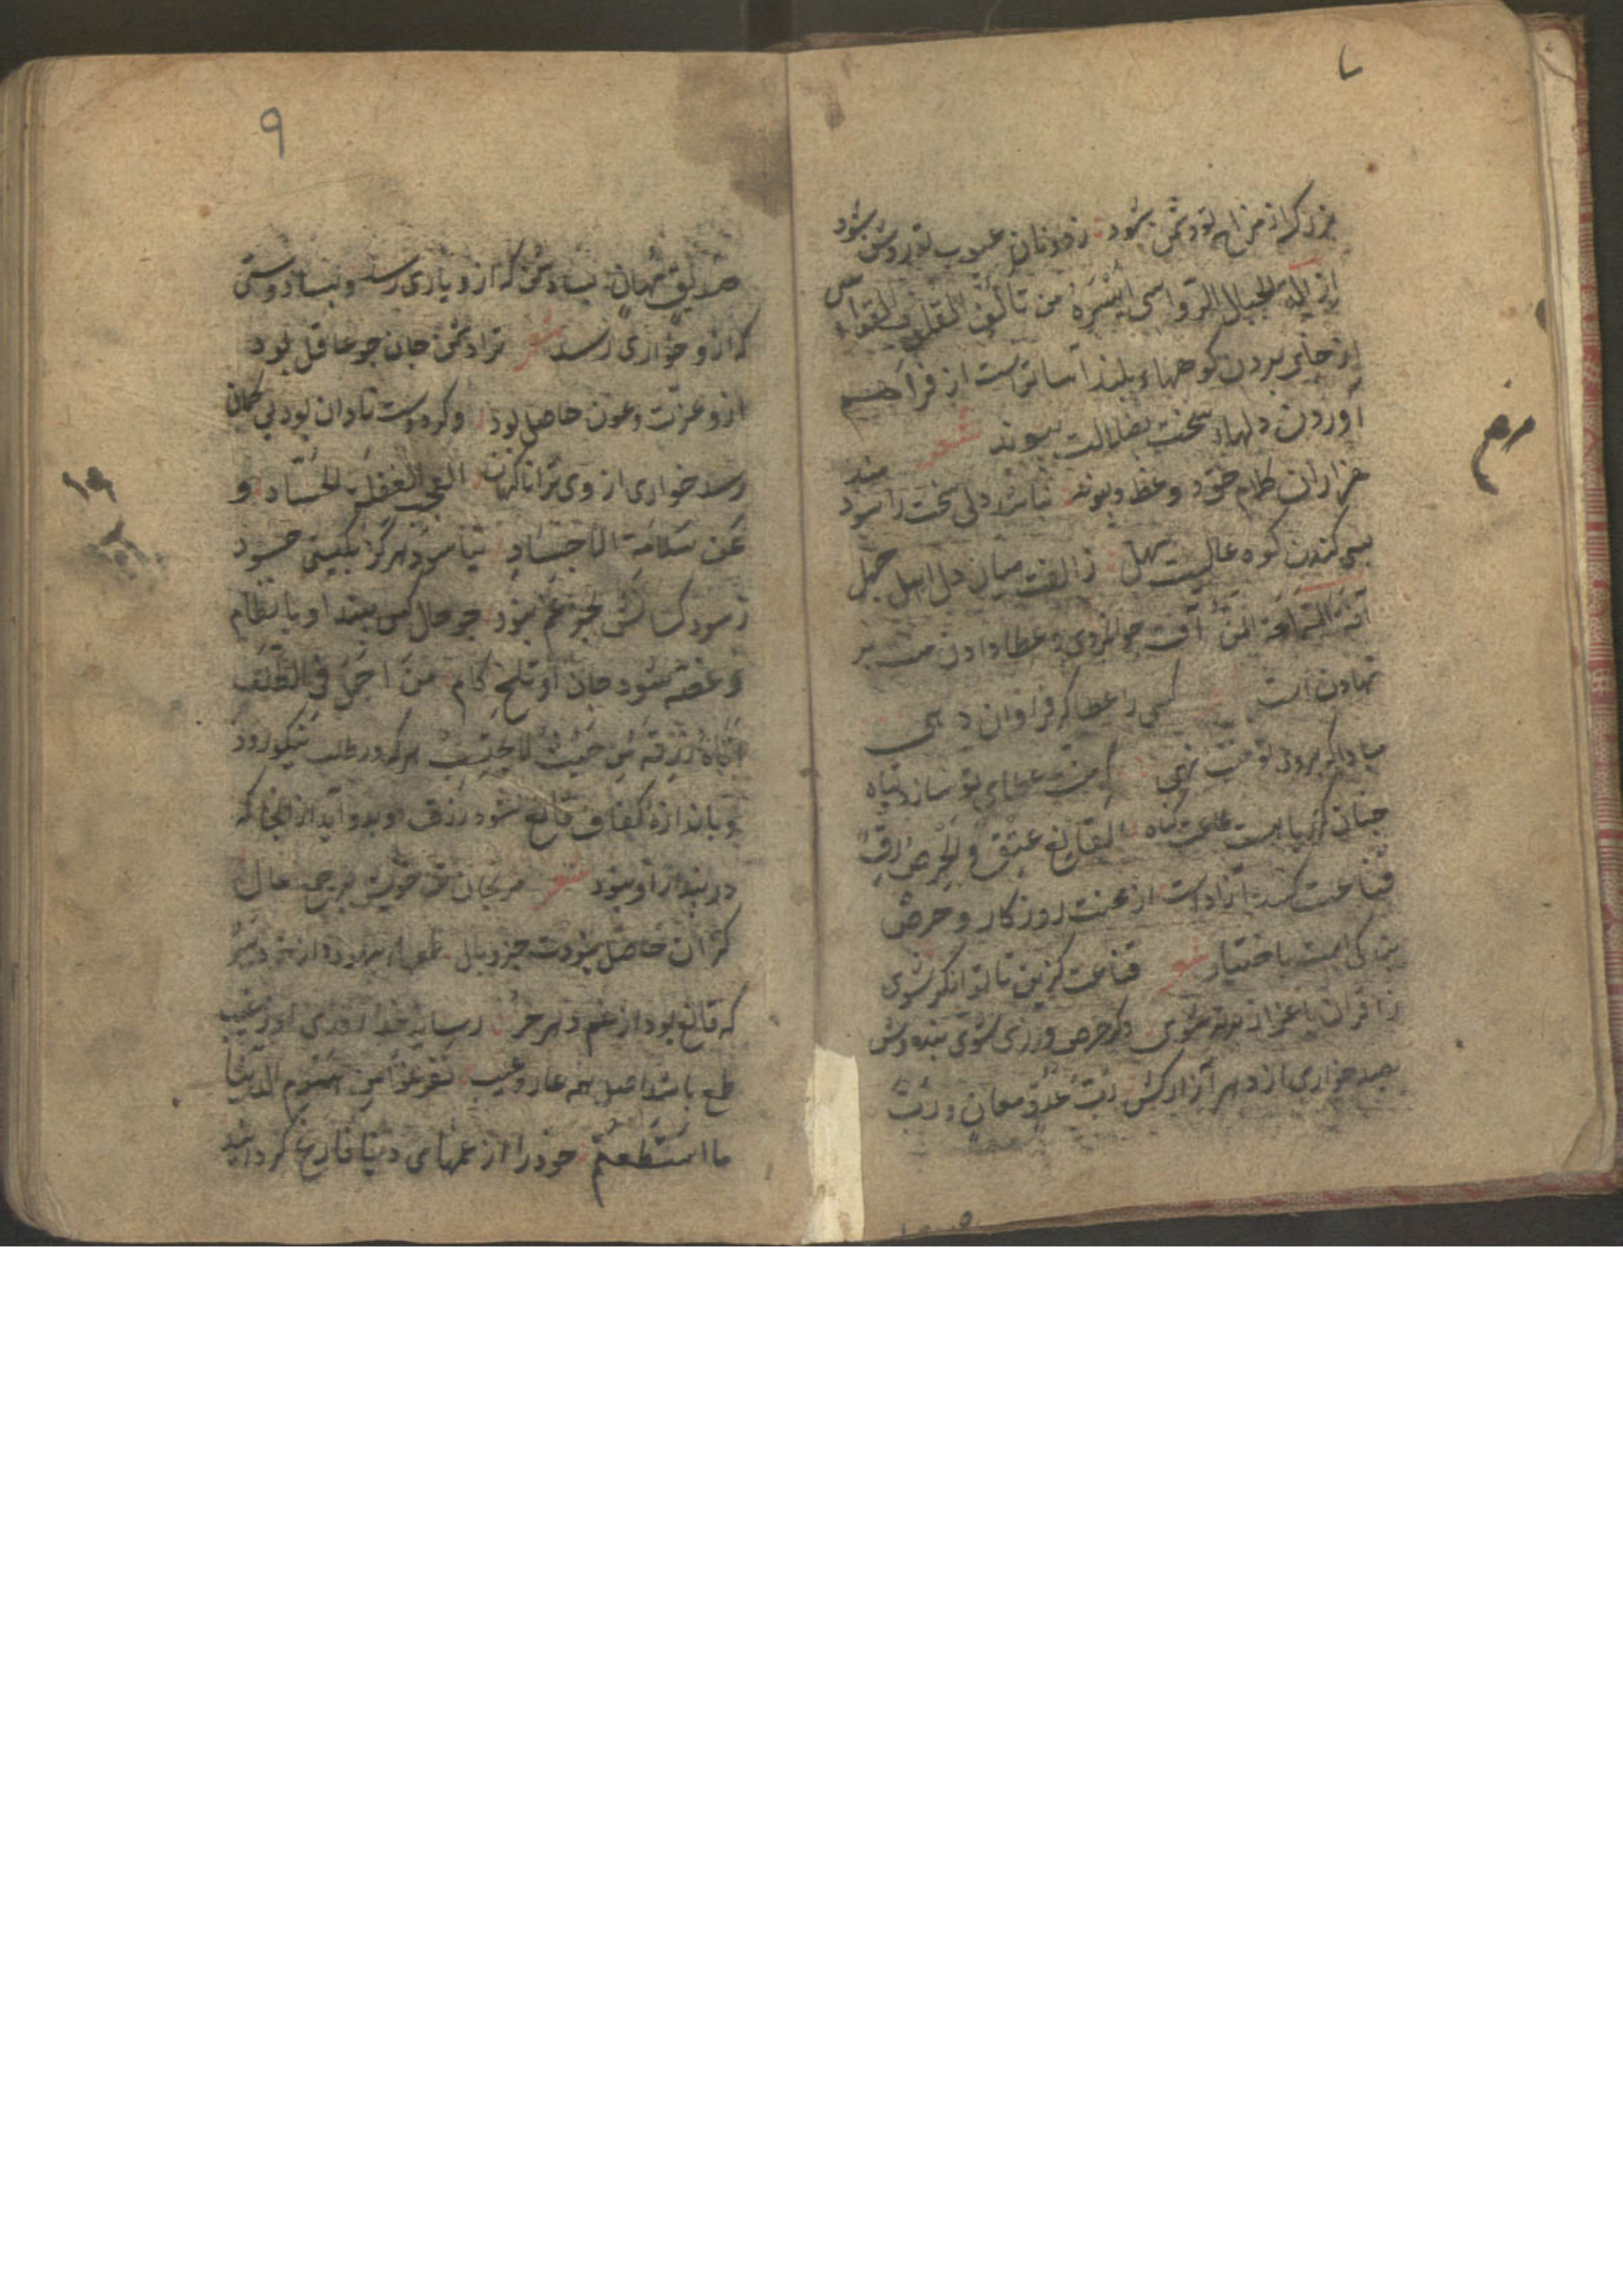 بزرگ از مزاح تو دشمن شود زدونان عیوب تو روشن شود
ازالة الجبال الرواسی ایسره من تألیف القلوب القواسی
از جای بردن کوههاء بلند آسان‌ترست از فراهم
آوردن دلهاء سخت بضلالت پیوند شعر
هزاران کلام خود و وعظ و پند نباشد دلی سخت را سودمند
بسی کندن کوه عالیست سهل ز الفت میان دل اهل جهل
آفة السماحة المن آفت جوانمردی و عطا دادن منت بر
نهادن است کسی را عطا گر فراوان دهی
مبادا که بروی تو منت نهی که منت عطای تو سازد تباه
چنان کز ریا هست طاعت گناه القانع عتیق و الحرص رق
قناعت کننده آزادست از محنت روزکار و حرص
بندگی است باختیار شعر قناعت گزین تا توانگر شوی
زاقران باعزاز مهتر شوی وگر حرص ورزی شوی بنده وش
بصد خواری از دهر آزار کش رب عدو معان و رب
۹
صدیق مهان بسا دشمن که ازو یاری رسد و بسا دوستی
که ازو خواری رسد شعر ترا دشمن جان چو عاقل بود
ازو عزت و عون حاصل بود وگر دوست نادان بود بی گمان
رسد خواری از وی ترا ناگهان العجب لغفلة الحساد
عن سلامة الاجساد نیاسود هرگز بگیتی حسود
ز سود کسانش بجز غم نبود چو حال کس بیند او با نظام
و غصه شود جان او تلخ کام من اجمل فی الطلب
اتاه رزقه من حیث لا یحتسب هرکه در طلب نیکو رود
و باندازه کفاف قانع شود رزق او بدو آید از آنجا که
در پندار او نبود شعر مرنجان تن خویش بر جمع مال
کزان حاصل نبودت جز وبال
که قانع بود از غم دهر حر رساند خدا روزی او ز غیب
طمع باشد اصل همه عار و عیب تفرغوا من هموم الدنیا
ما استطعتم خود را از غمهای دنیا فارغ گردانید